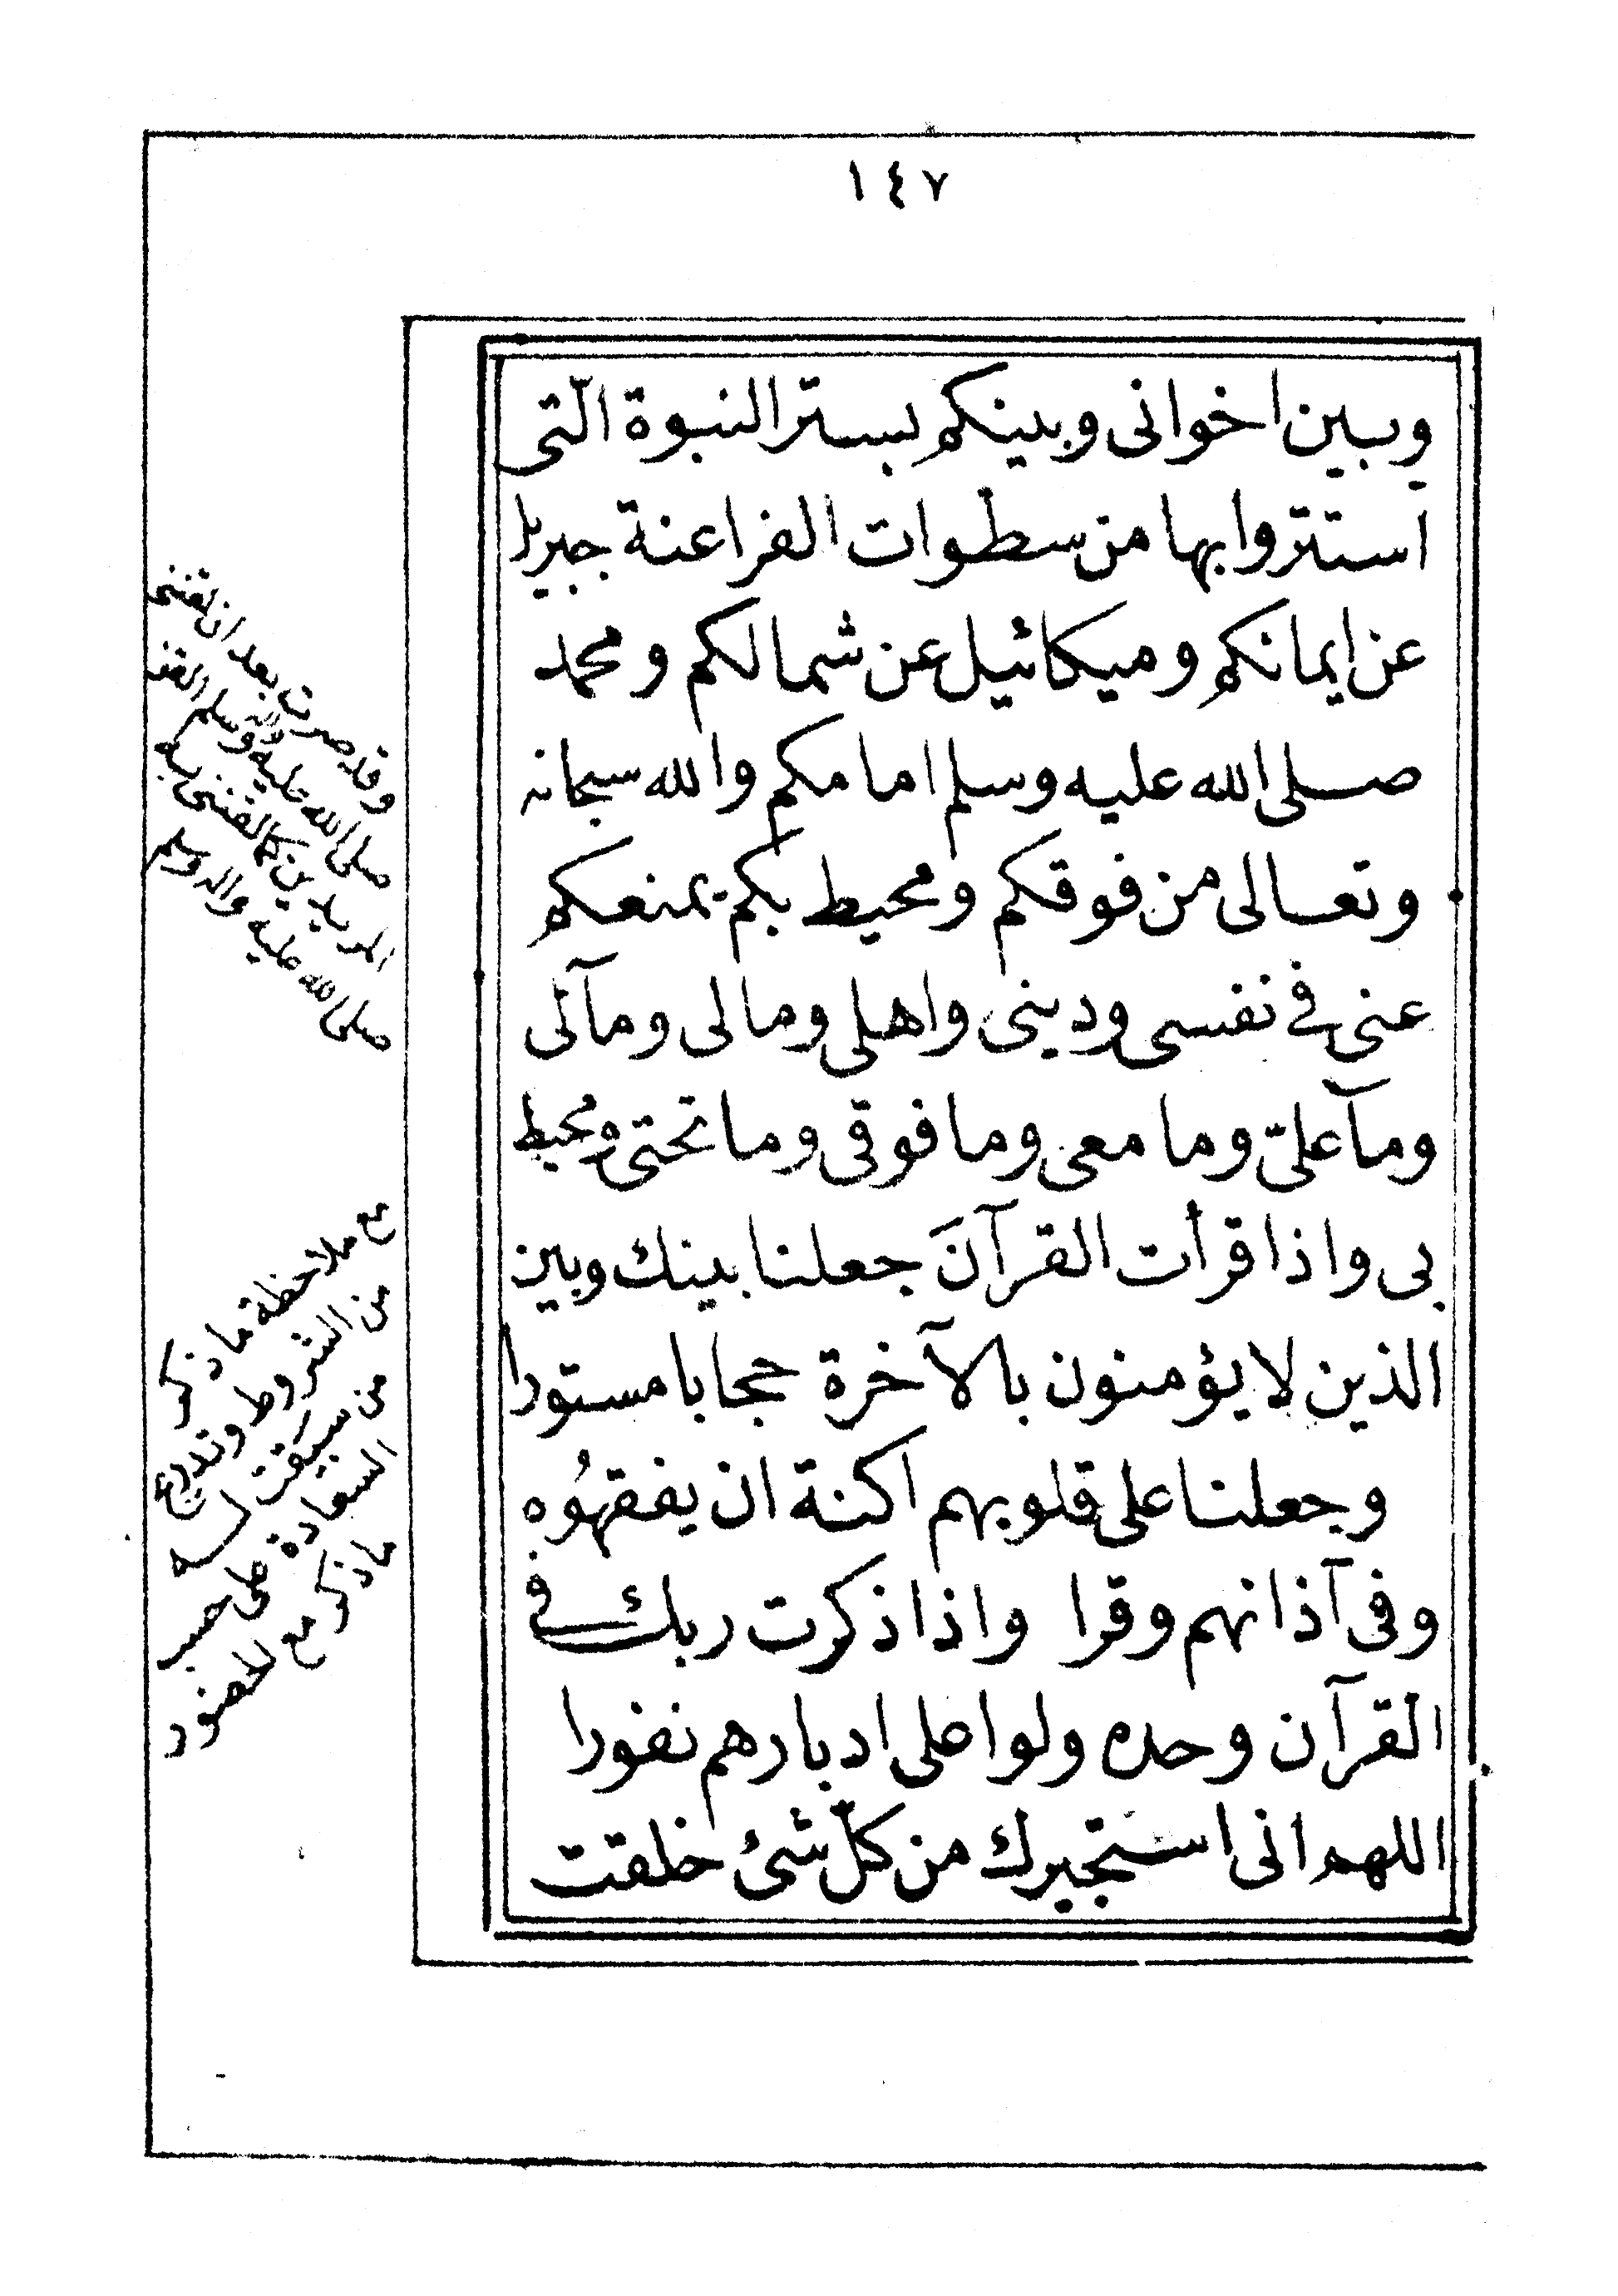 ١٤٧
وبين اخوانى وبينكم بستر النبوة الّتى
استتروا بها من سطوات الفراعنة جبريل
عن ايمانكم وميكائيل عن شمالكم ومحمد
صلى الله عليه وسلم امامكم والله سبحانه
وتعالى من فوقكم ومحيط بكم يمنعكم
عنى فى نفسى ودينى واهلى ومالى ومآلى
ومآ علىّ وما معى وما فوقى وما تحتى ومحيط
بى واذا قرأت القرآنَ جعلنا بينك وبين
الذين لا يؤمنون بالآخرة حجابا مستورا
وجعلنا على قلوبهم اكنة ان يفقهُوه
وفى آذانهم وقرا واذا ذكرت ربك فى
القرآن وحده ولوا على ادبارهم نفورا
اللهم انى استجيرك من كلّ شئ خلقت
وقد صرت بعد ان لقننى
صلى الله عليه وآله وسلم القن
المريدين كما لقننى به
صلى الله عليه واله وسلم
مع ملاحظة ما ذكر
من الشروط وتدرج
من سبقت له
السعادة على حسب
ما ذكر مع